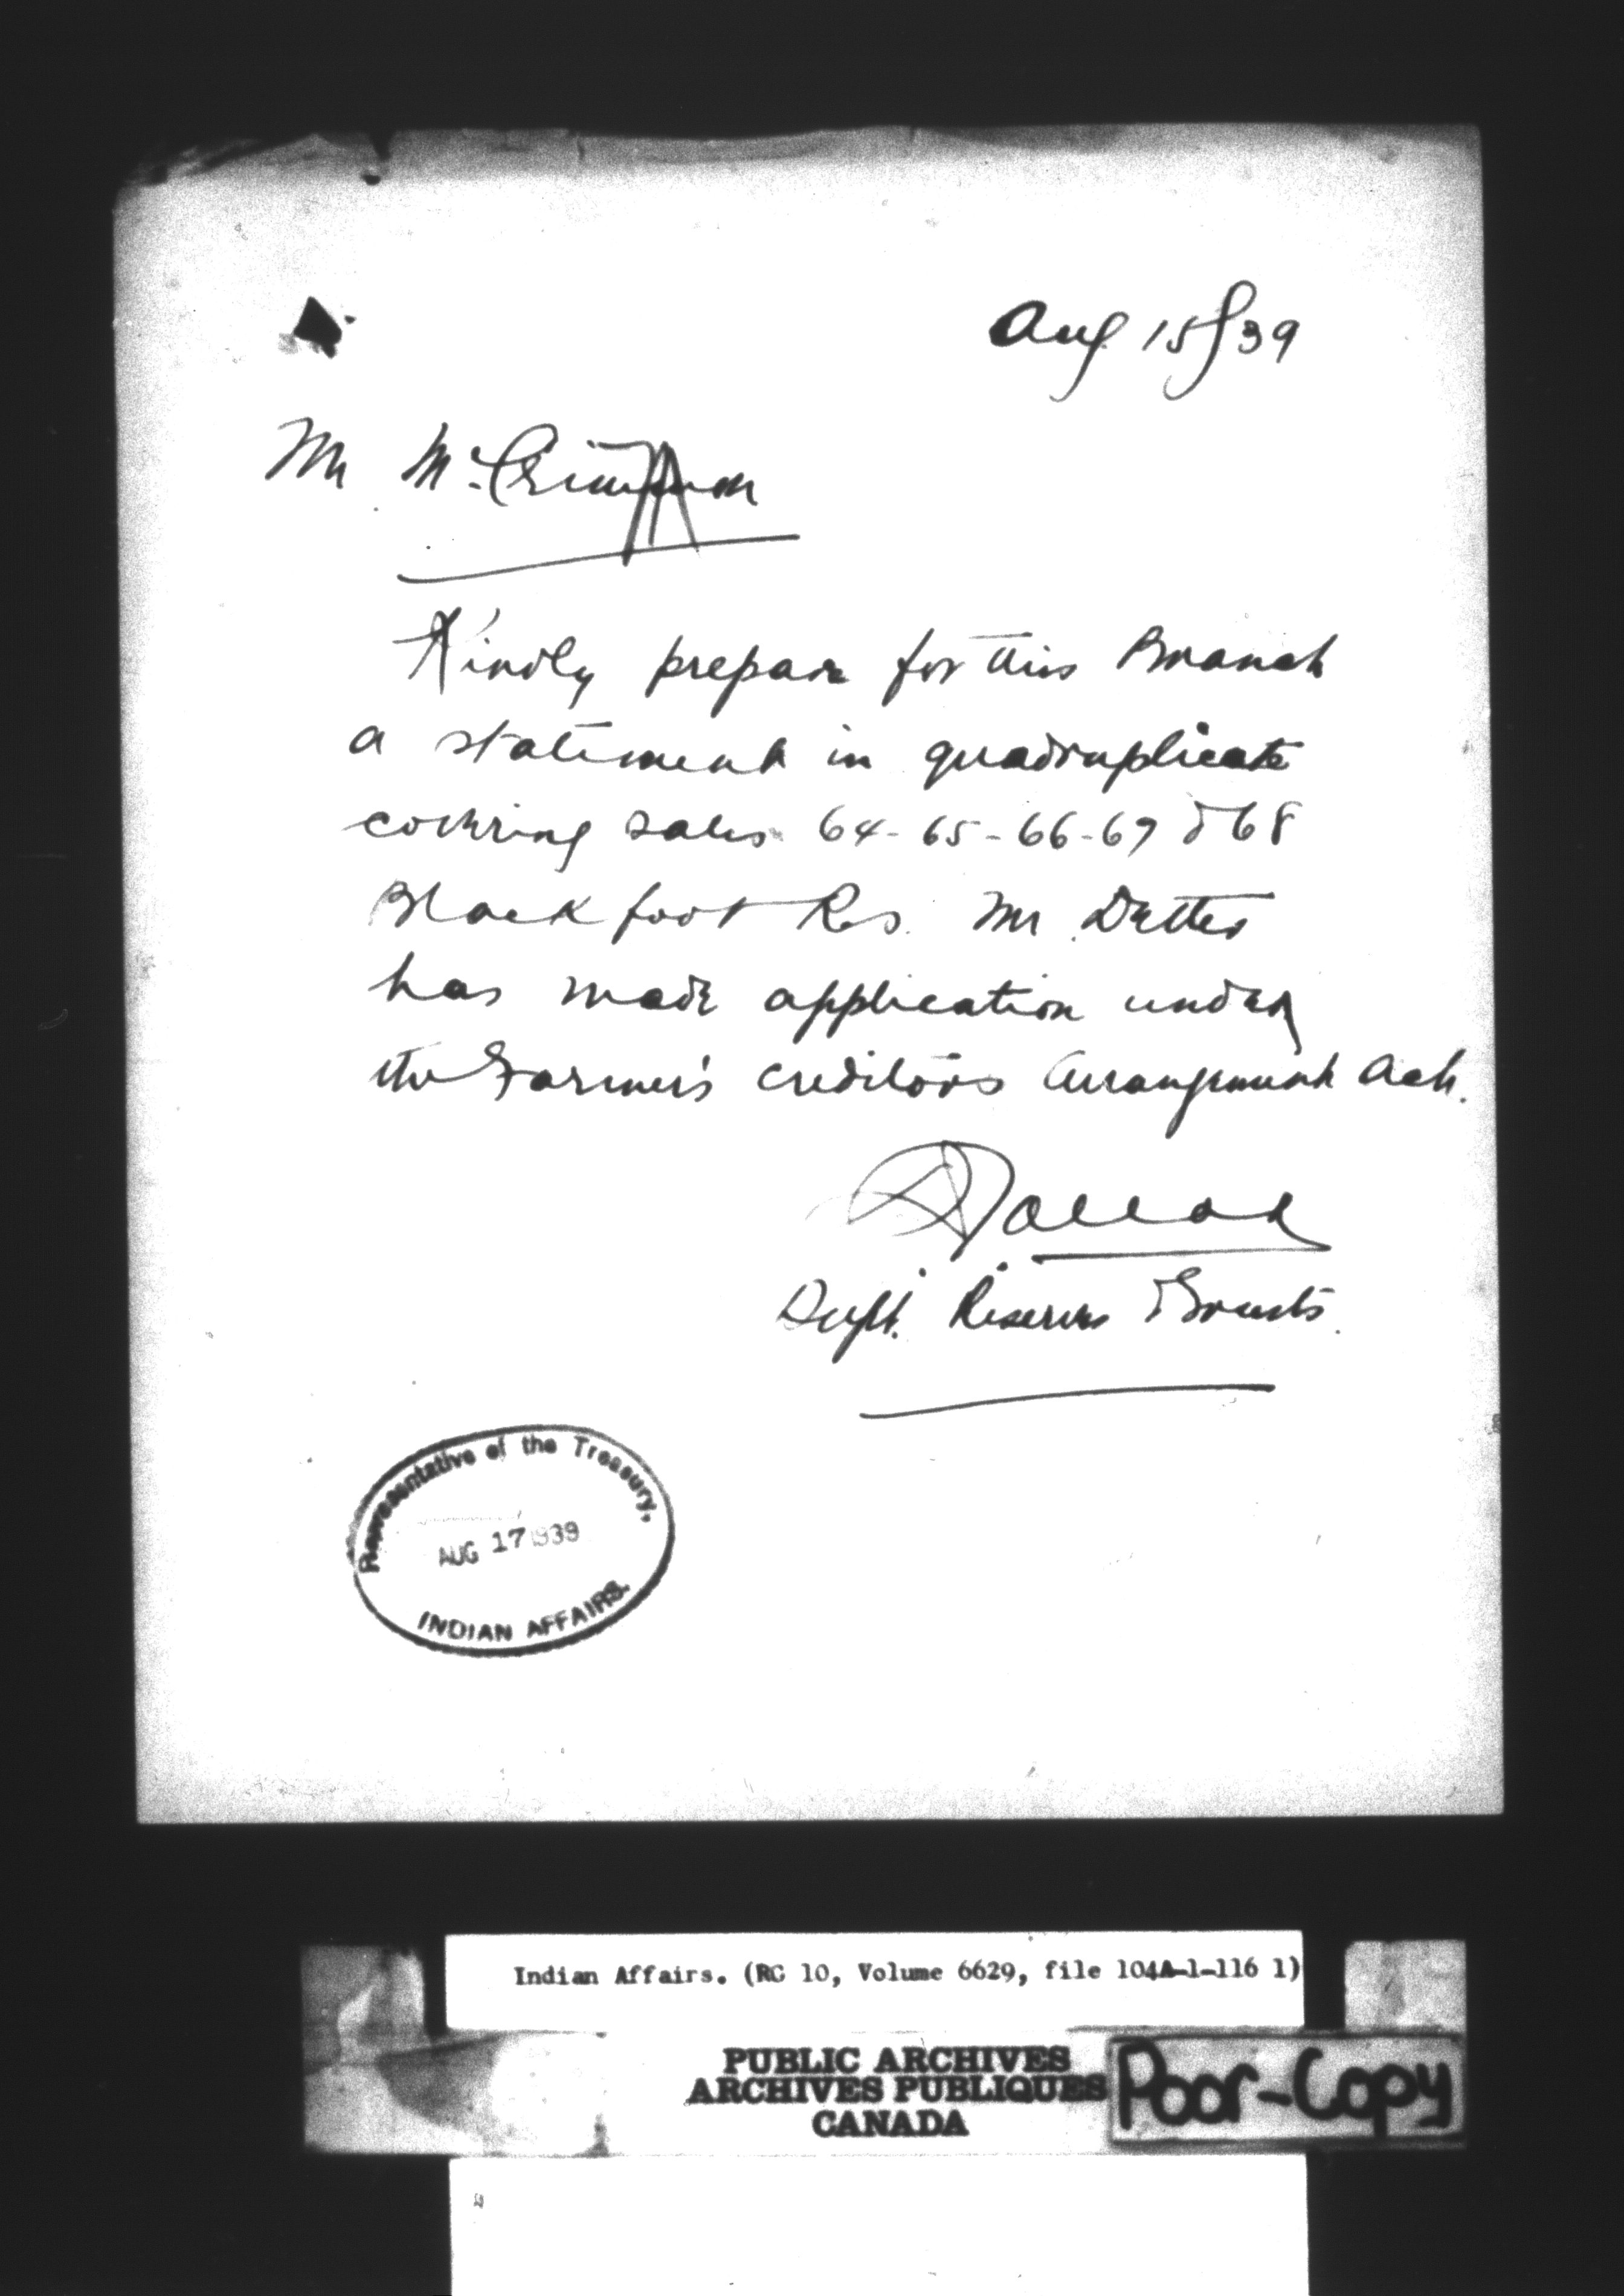 Aug 15/39
Mr McCrimmon
Kindly prepare for this Branch
a statement in quadruplicate
covering sales 64-65-66-67 & 68
Blackfoot Res. Mr
has made application under
the Farmer's creditors Arrangement Act.
Supt. Reserves & Trusts.
Representative of the Treasury,
AUG 17 1939
INDIAN AFFAIRS.
Indian Affairs. (RG 10, Volume 6629, file 104A-1-116 1)
PUBLIC ARCHIVES
ARCHIVES PUBLIQUES
CANADA
Poor-Copy